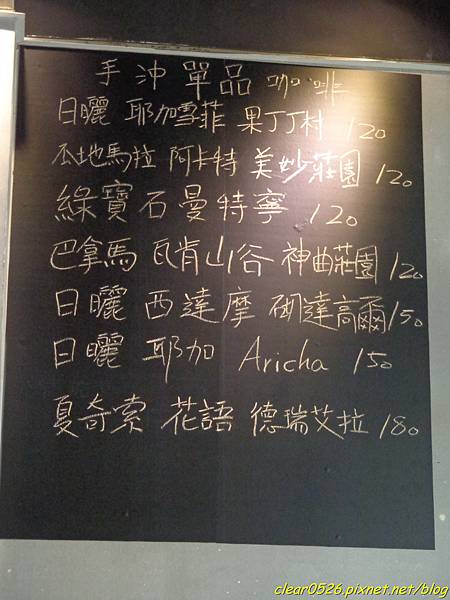 手沖單品咖啡
日曬 耶加雪菲 果丁丁村 120
瓜地馬拉 阿卡特 美妙莊園 120
綠寶石曼特寧 120
巴拿馬 瓦肯山谷 神曲莊園 120
日曬 西達摩 硇達高爾 150
日曬 耶加 Aricha 150
夏奇索 花語 德瑞艾拉 180
clear0526.pixnet.net/blog